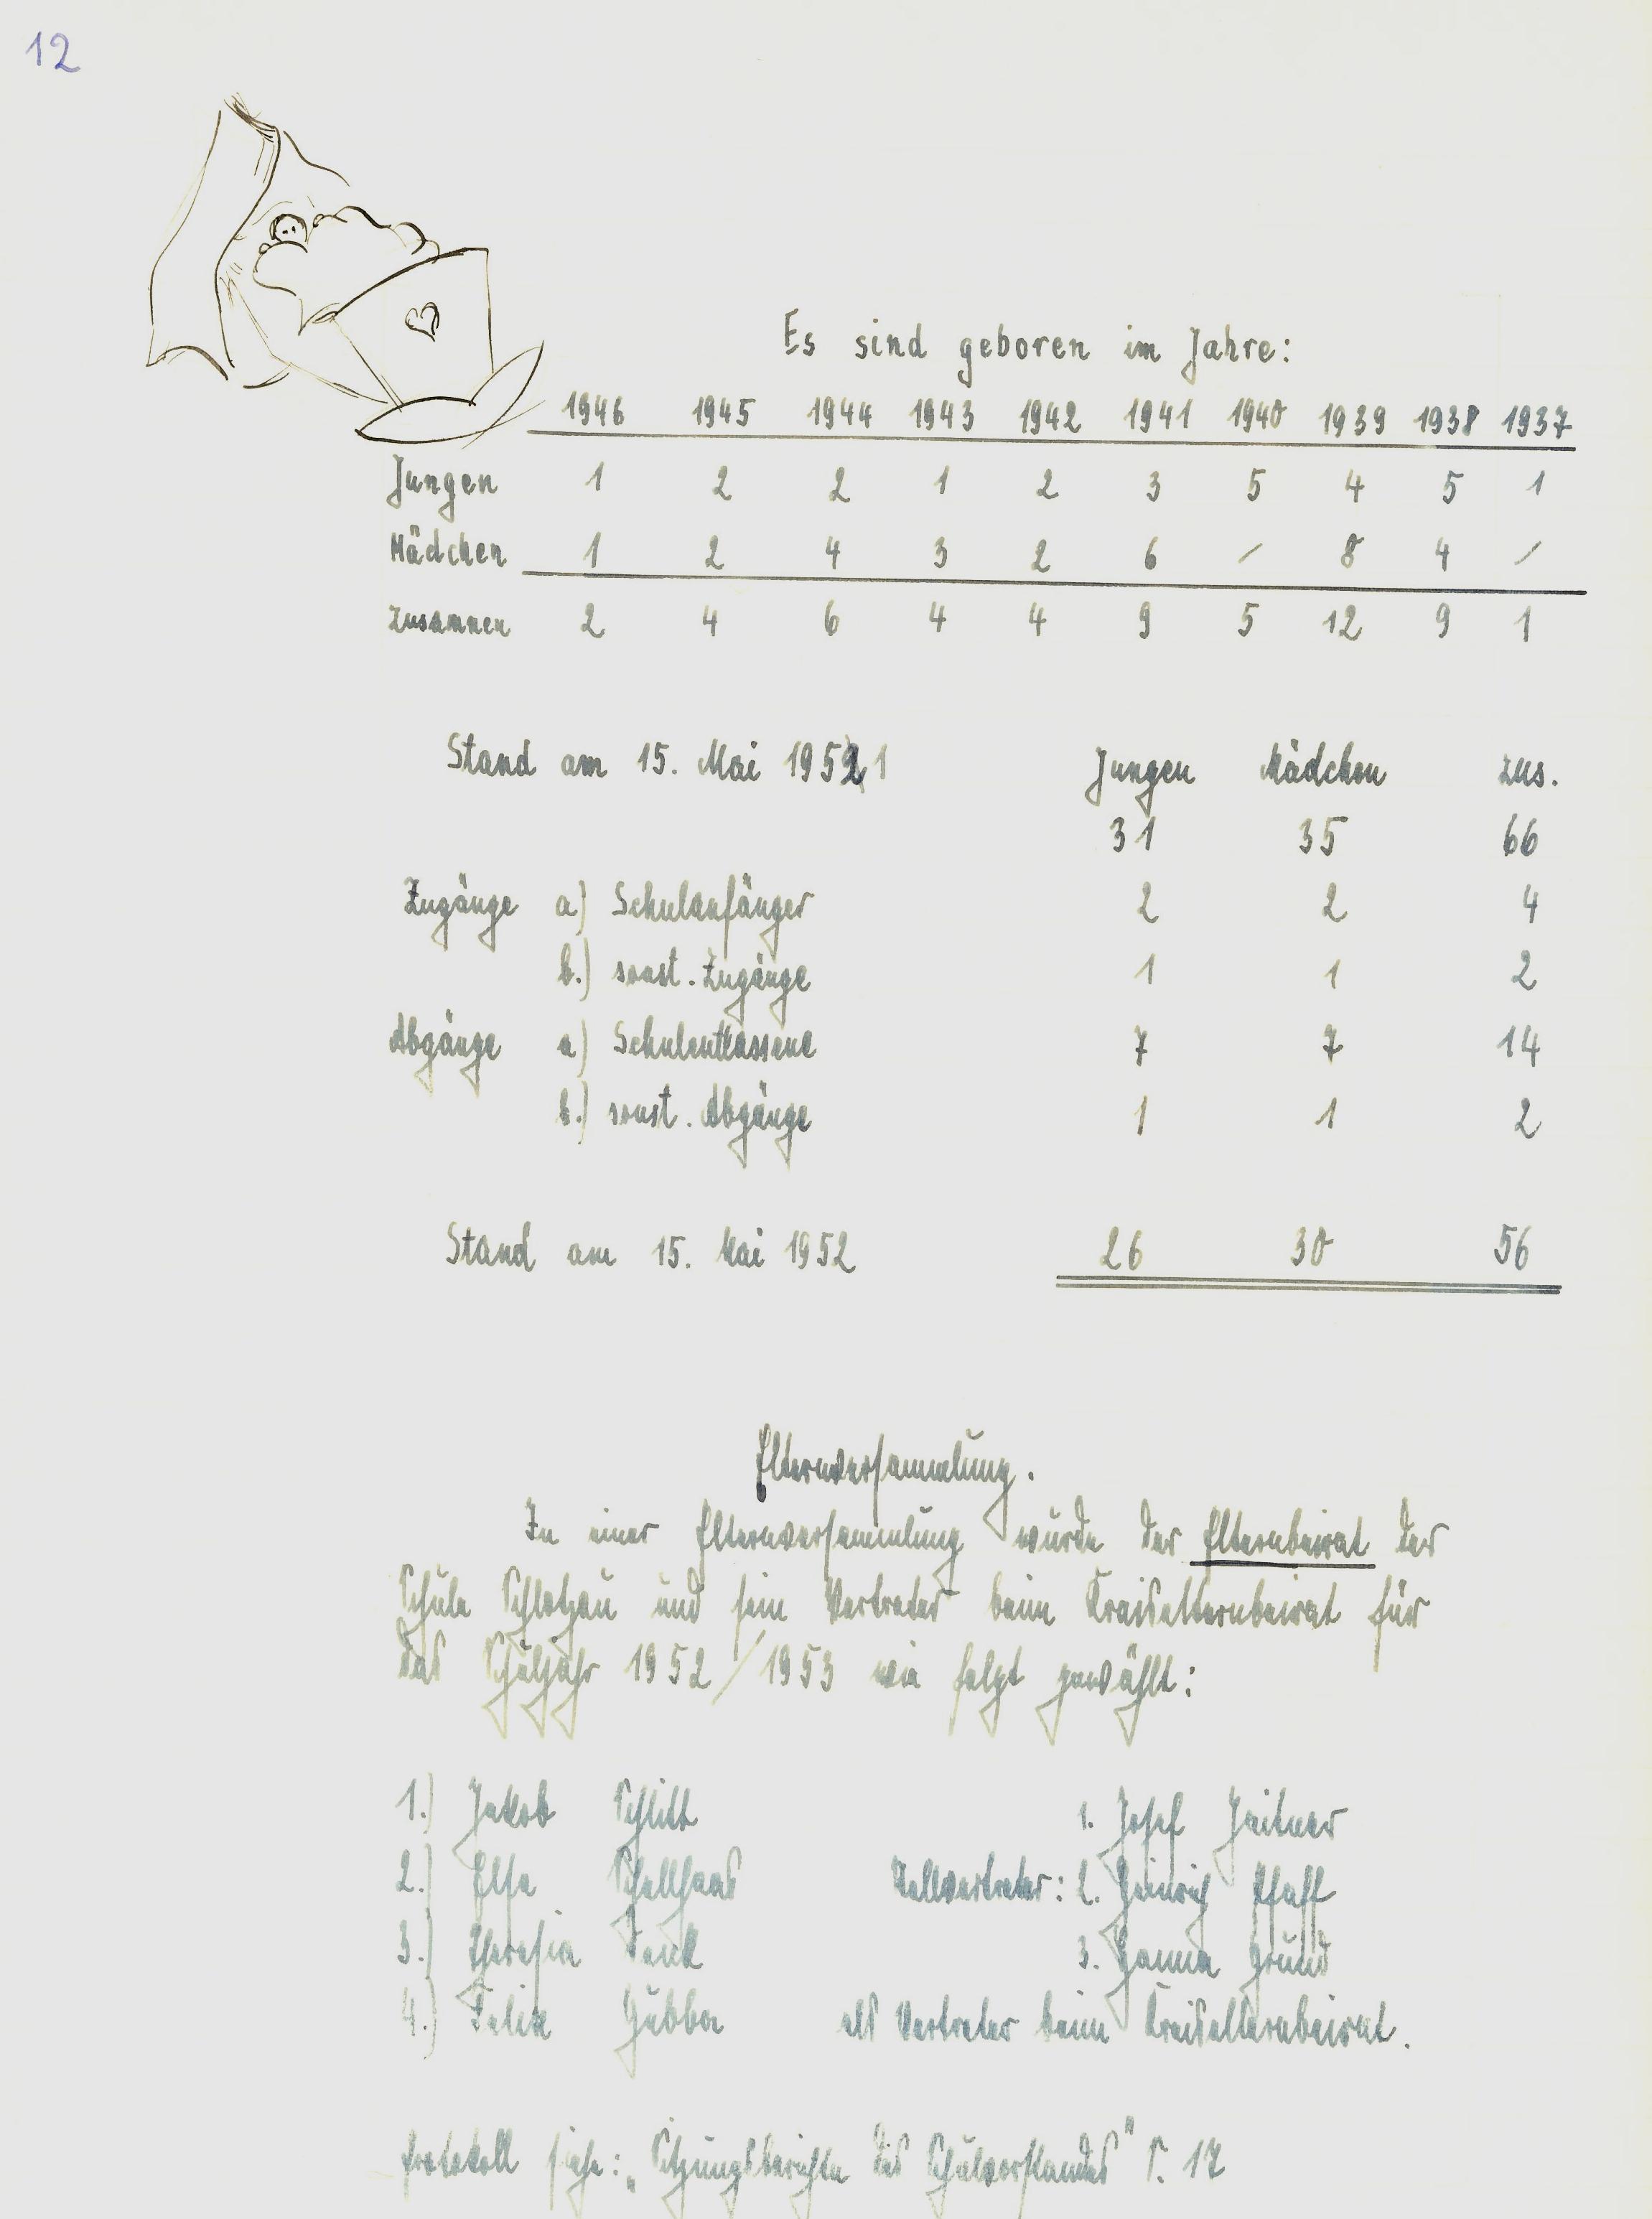 12
Es sind geboren im Jahre:
1946 1945 1944 1943 1942 1941 1940 1939 1938 1937
Jungen 1 2 2 1 2 3 5 4 5 1
Mädchen 1 2 4 3 2 6 / 8 4 /
zusammen 2 4 6 4 4 9 5 12 9 1
Stand am 15. Mai 1951 Jungen Mädchen zus.
31 35 66
Zugänge a) Schulanfänger 2 2 4
b.) sonst. Zugänge 1 1 2
Abgänge a) Schulentlassene 7 7 14
b.) sonst. Abgänge 1 1 2
Stand am 15. Mai 1952 26 30 56
Elternversammlung.
In einer Elternversammlung wurde der Elternbeirat der
Schule Schlotzau und sein Vertreter beim Kreiselternbeirat für
das Schuljahr 1952/1953 wie folgt gewählt:
1.) Jakob Schlitt 1. Josef Zeitner
2.) Else Schellhaas Stellvertreter: 2. Heinrich Pfaff
3.) Theresia 3. Hanna Grund
4.) Felix Hübba als Vertreter beim Kreiselternbeirat.
Protokoll siehe: „Sitzungsberichte des Schulvorstandes" S. 17